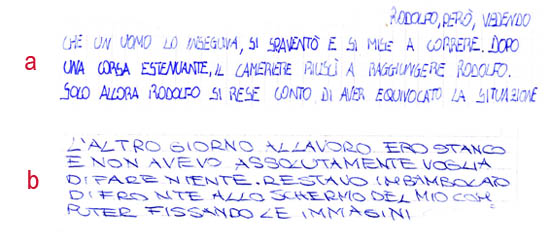 RODOLFO, PERÒ, VEDENDO
a
CHE UN UOMO LO INSEGUIVA, SI SPAVENTÒ E SI MISE A CORRERE. DOPO
UNA CORSA ESTENUANTE, IL CAMERIERE RIUSCÌ A RAGGIUNGERE RODOLFO.
SOLO ALLORA RODOLFO SI RESE CONTO DI AVER EQUIVOCATO LA SITUAZIONE
b
L'ALTRO GIORNO AL LAVORO ERO STANCO
E NON AVEVO ASSOLUTAMENTE VOGLIA
DI FARE NIENTE. RESTAVO IMBAMBOLATO
DI FRONTE ALLO SCHERMO DEL MIO COM
PUTER FISSANDO LE IMMAGINI